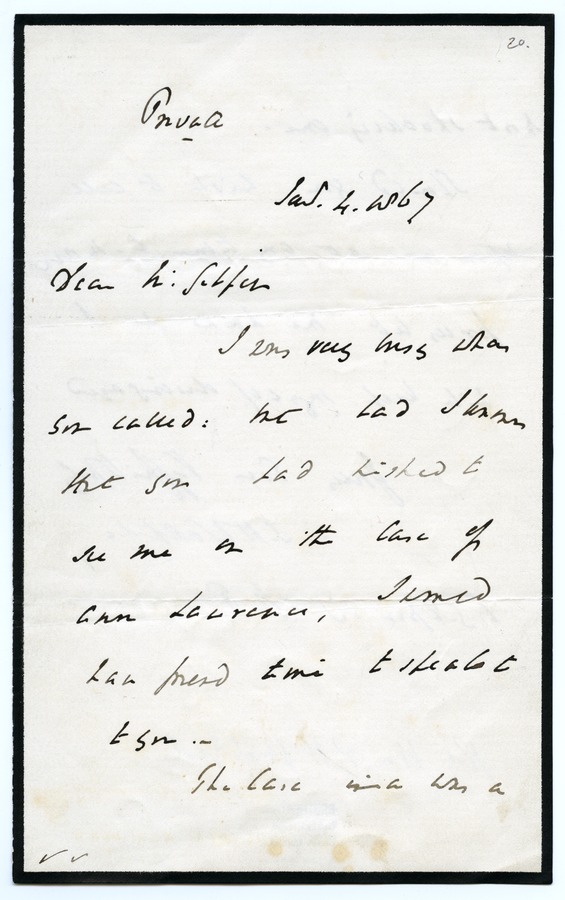 20.
Private
Jan. 4. 1867
Dear Mr. Gilpin
I was very busy when
you called: but had I known
that you had wished to
see me on the case of
Ann Lawrence, I would
have found time to speak
to you. -
The Case was a